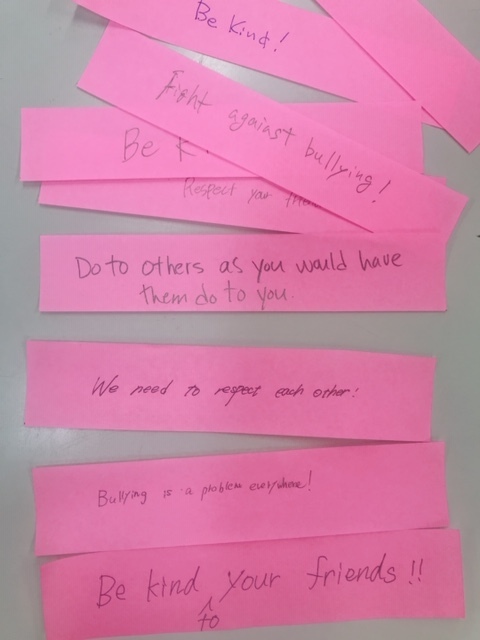 Be Kind!
Fight against bullying!
Be K
Respect your
Do to others as you would have
them do to you.
We need to respect each other!
Bullying is a problem everywhere!
Be kind to your friends!!